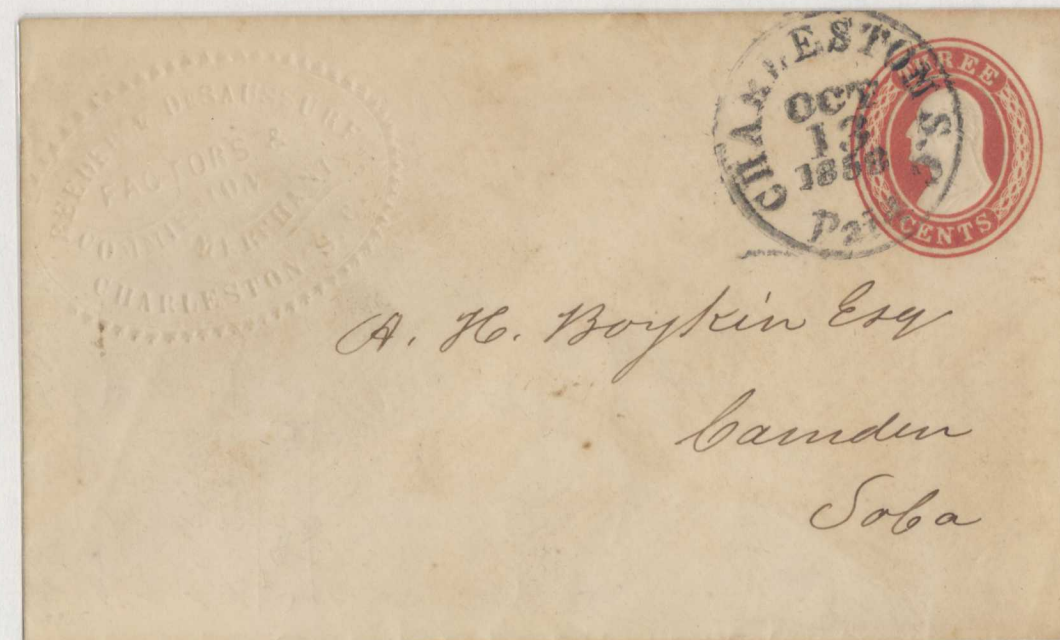 DESAUSSURE
FACTORS &
COMMISSION
MERCHANTS
CHARLESTON. S. C.
CHARLESTON S.C.
OCT
13
1859
Paid
THREE
CENTS
A. H. Boykin Esq
Camden
So Ca